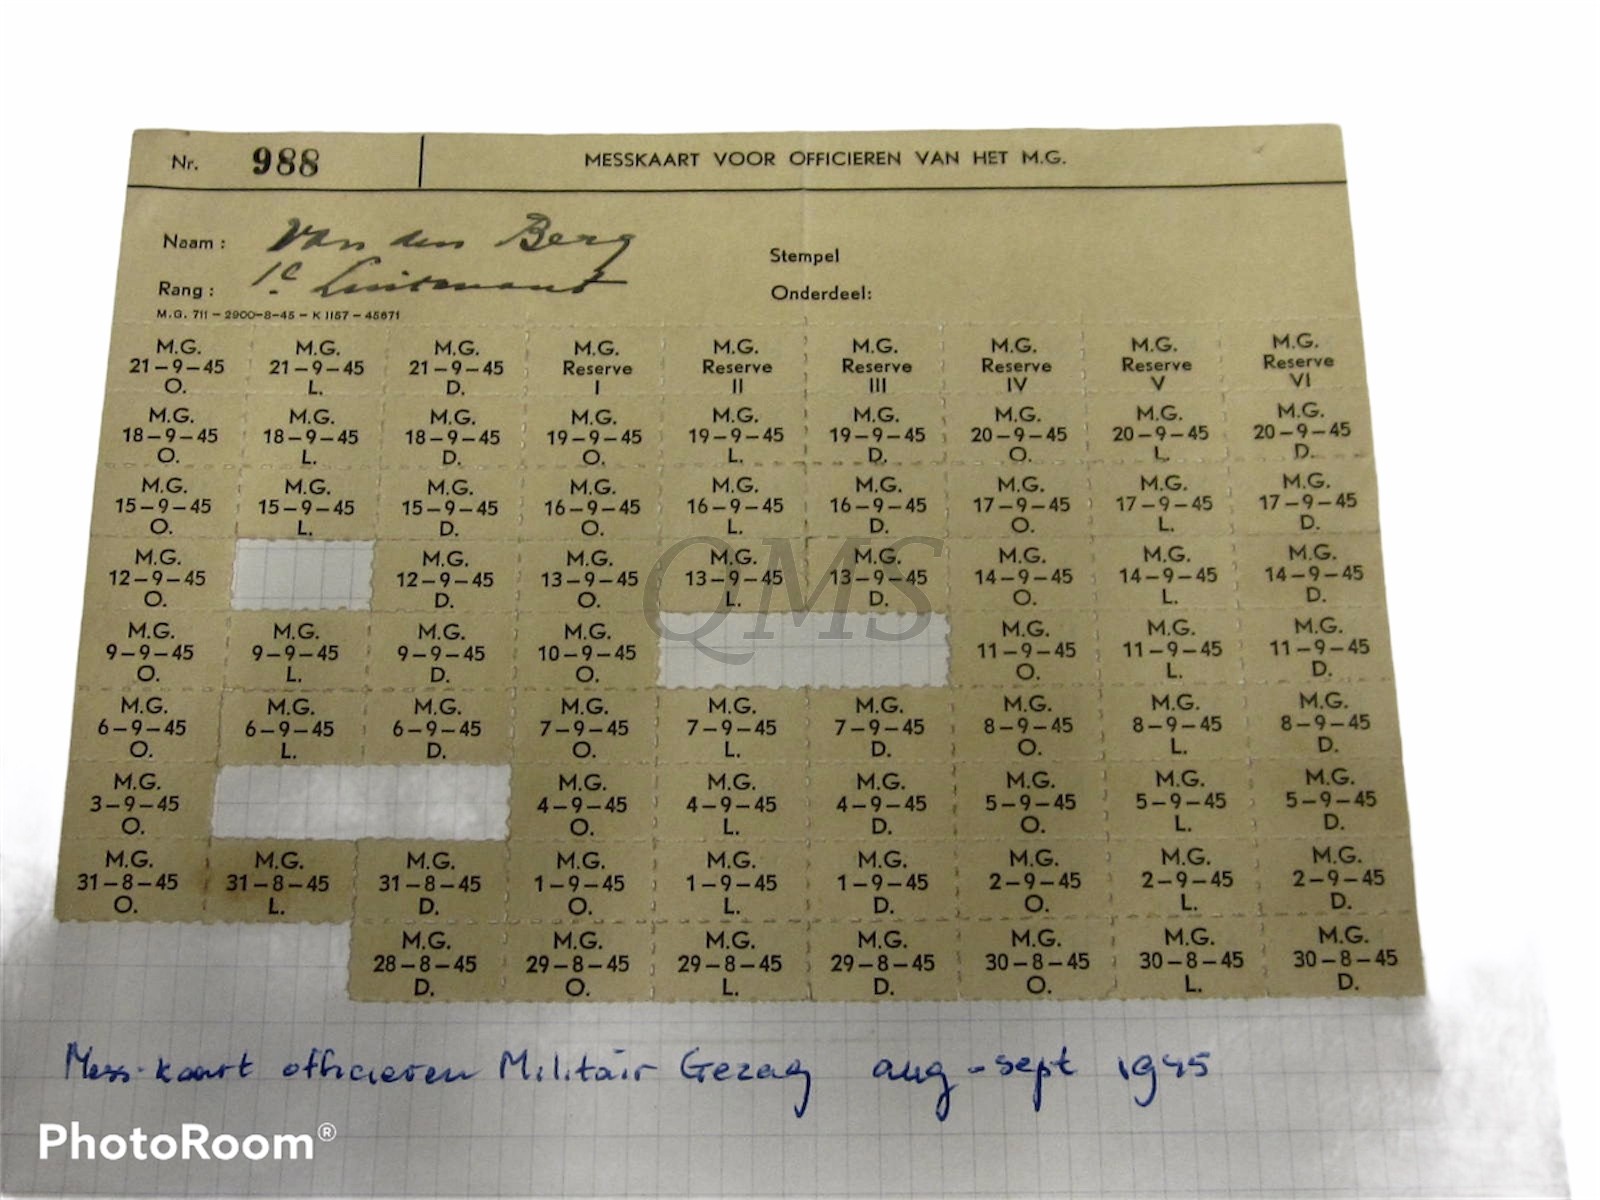 Nr. 988 MESSKAART VOOR OFFICIEREN VAN HET M.G.
Naam: Van den Berg
Stempel
Rang: 1e Luitenant
Onderdeel:
M.G. 711 – 2900–8–45 – K 1157 – 45871
M.G. M.G. M.G. M.G. M.G. M.G. M.G. M.G. M.G.
21–9–45 21–9–45 21–9–45 Reserve Reserve Reserve Reserve Reserve Reserve
O. L. D. I II III IV V VI
M.G. M.G. M.G. M.G. M.G. M.G. M.G. M.G. M.G.
18–9–45 18–9–45 18–9–45 19–9–45 19–9–45 19–9–45 20–9–45 20–9–45 20–9–45
O. L. D. O. L. D. O. L. D.
M.G. M.G. M.G. M.G. M.G. M.G. M.G. M.G. M.G.
15–9–45 15–9–45 15–9–45 16–9–45 16–9–45 16–9–45 17–9–45 17–9–45 17–9–45
O. L. D. O. L. D. O. L. D.
M.G. M.G. M.G. M.G. M.G. M.G. M.G. M.G.
12–9–45 12–9–45 13–9–45 13–9–45 13–9–45 14–9–45 14–9–45 14–9–45
O. D. O. L. D. O. L. D.
QMS
M.G. M.G. M.G. M.G. M.G. M.G. M.G.
9–9–45 9–9–45 9–9–45 10–9–45 11–9–45 11–9–45 11–9–45
O. L. D. O. O. L. D.
M.G. M.G. M.G. M.G. M.G. M.G. M.G. M.G. M.G.
6–9–45 6–9–45 6–9–45 7–9–45 7–9–45 7–9–45 8–9–45 8–9–45 8–9–45
O. L. D. O. L. D. O. L. D.
M.G. M.G. M.G. M.G. M.G. M.G. M.G.
3–9–45 4–9–45 4–9–45 4–9–45 5–9–45 5–9–45 5–9–45
O. O. L. D. O. L. D.
M.G. M.G. M.G. M.G. M.G. M.G. M.G. M.G. M.G.
31–8–45 31–8–45 31–8–45 1–9–45 1–9–45 1–9–45 2–9–45 2–9–45 2–9–45
O. L. D. O. L. D. O. L. D.
M.G. M.G. M.G. M.G. M.G. M.G. M.G.
28–8–45 29–8–45 29–8–45 29–8–45 30–8–45 30–8–45 30–8–45
D. O. L. D. O. L. D.
Mess-kaart officieren Militair Gezag aug-sept 1945
PhotoRoom®